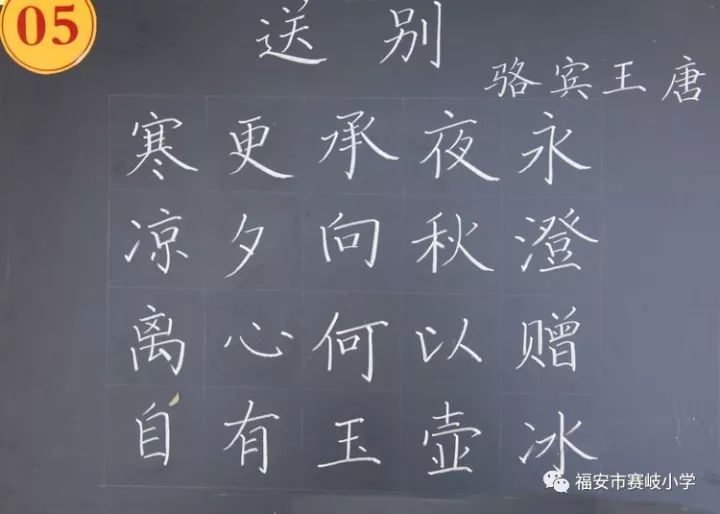 05
送别
骆宾王 唐
寒更承夜永
凉夕向秋澄
离心何以赠
自有玉壶冰
福安市赛岐小学